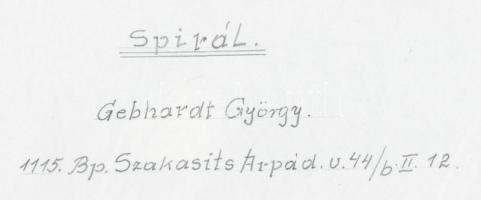 Spirál.
Gebhardt György.
1115. Bp. Szakasits Árpád. u. 44/b. II. 12.